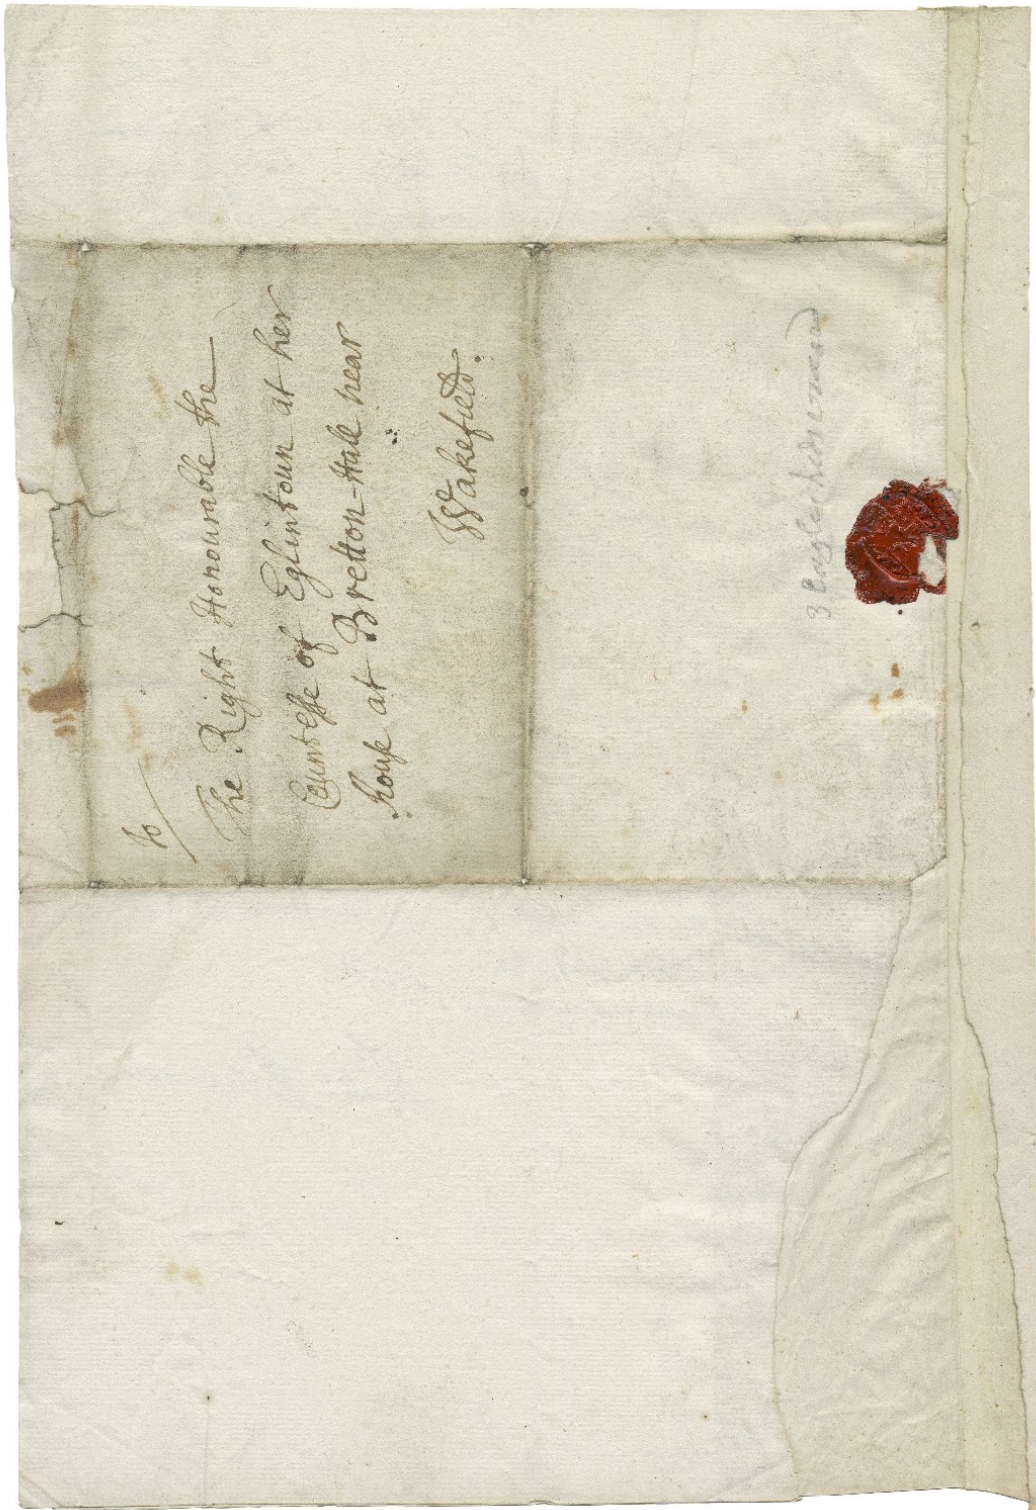 To
The Right Honourable the
Countesse of Eglintoun at her
house at Bretton-Hall near
Wakefield.
3 Eagles heads